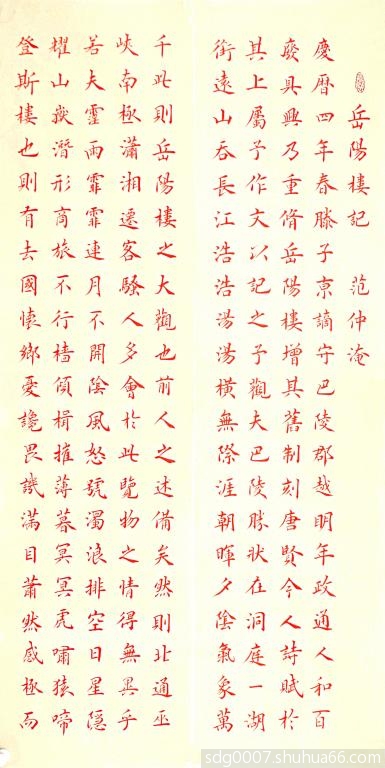 岳陽樓記 范仲淹
慶曆四年春滕子京謫守巴陵郡越明年政通人和百
廢具興乃重脩岳陽樓增其舊制刻唐賢今人詩賦於
其上屬予作文以記之予觀夫巴陵勝狀在洞庭一湖
銜遠山吞長江浩浩湯湯橫無際涯朝暉夕陰氣象萬
千此則岳陽樓之大觀也前人之述備矣然則北通巫
峽南極瀟湘遷客騷人多會於此覽物之情得無異乎
若夫霪雨霏霏連月不開陰風怒號濁浪排空日星隱
耀山嶽潛形商旅不行檣傾楫摧薄暮冥冥虎嘯猿啼
登斯樓也則有去國懷鄉憂讒畏譏滿目蕭然感極而
sdg0007.shuhua66.com